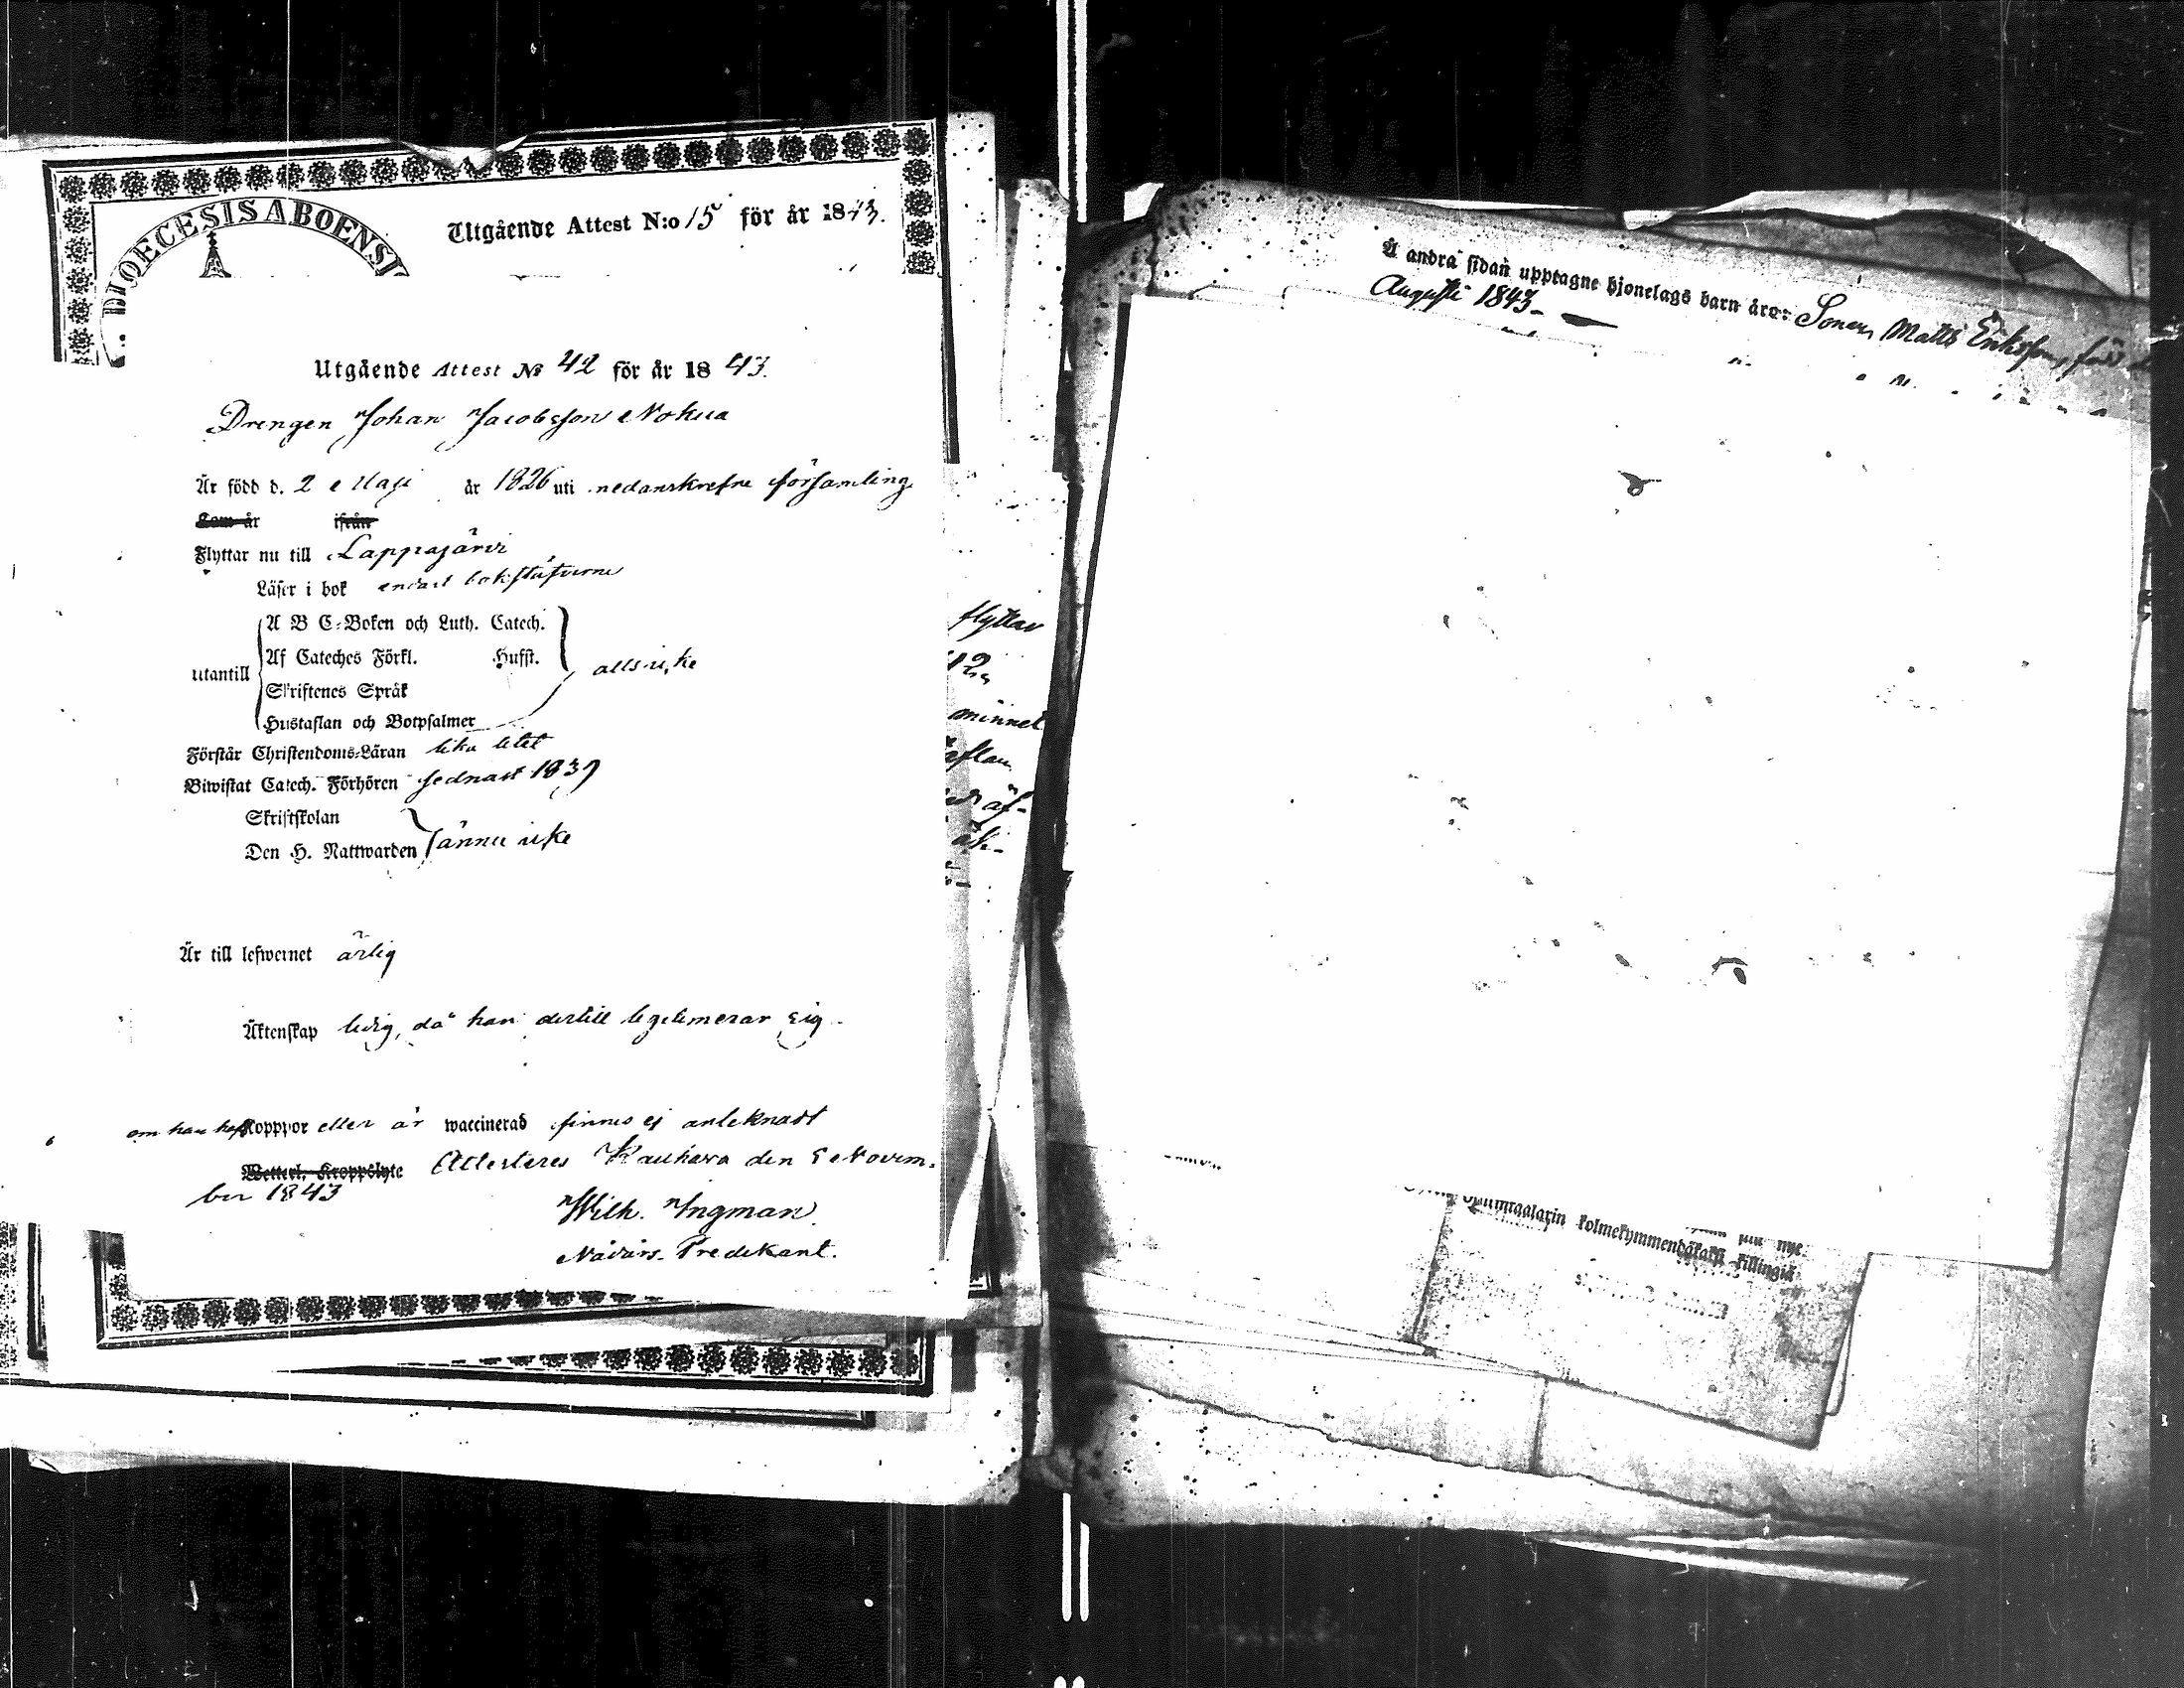 DIOECESIS ABOENSI
Utgående Attest N:o 15 för år 1843.
Utgående Attest No 42 för år 1843.
Drengen Johan Jacobsson Nokua
Är född d. 2 Maji år 1826 uti nedanskrefne församling
Kom år ifrån
Flyttar nu till Lappajärvi
Läser i bok endast bokstäfverne
utantill
A B C-Boken och Luth. Catech.
Af Cateches Förkl. Hufst.
allsicke
Skriftenes Språk
Hustaflan och Botpsalmer
Förstår Christendoms-Läran lika litet
Biwistat Catech. Förhören sednast 1839
Skriftskolan
Den H. Nattwarden ännu icke
Är till lefwernet ärlig
Äktenskap ledig, då han dertill legitimerar sig.
om han haft Koppor eller är waccinerad finnes ej anteknadt
Wetterl. Kroppslyte Attesteres Kauhava den 5 Novem-
ber 1843
Wilh. Ingman
Nådårs-Predikant.
flyttar
minnet
aflan
Å andra sidan upptagne hjonelags barn äro: Sonen Matts Eriksson, född
Augusti 1843
kolmekymmendäkaksi killingiä